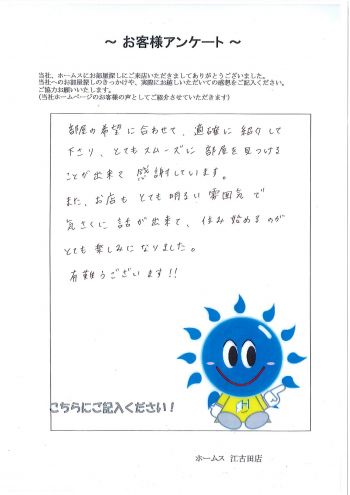 ～ お客様アンケート ～
当社、ホームスにお部屋探しにご来店いただきましてありがとうございました。
当社へのお部屋探しのきっかけや、実際にお越しいただいての感想をご記入ください。
ご協力お願いいたします。
(当社ホームページのお客様の声としてご紹介させていただきます)
部屋の希望に合わせて、適確に紹介して
下さり、とてもスムーズに部屋を見つける
ことが出来て 感謝しています。
また、お店も とても明るい 雰囲気で
気さくに 話が出来て、住み始めるのが
とても楽しみになりました。
有難うございます!!
H
こちらにご記入ください！
ホームス 江古田店